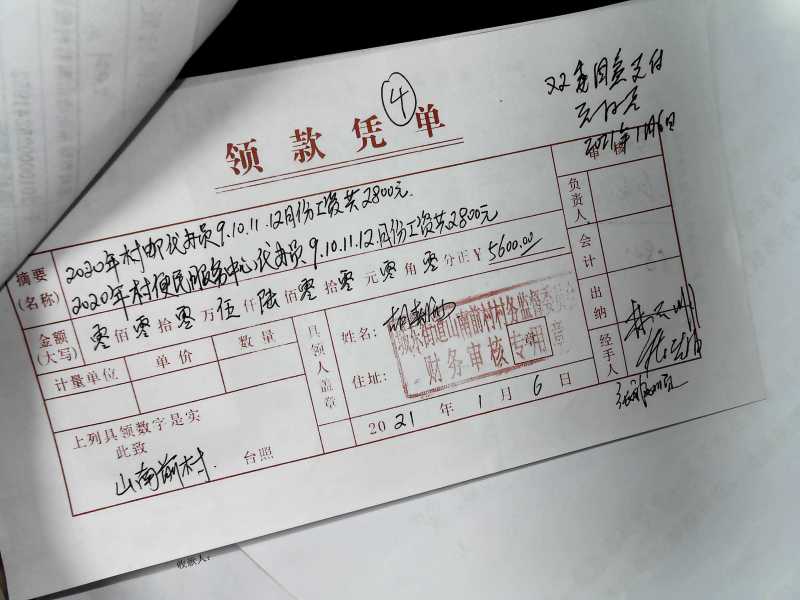 ④
领款凭单
同意支付
2021年1月6日
摘要
(名称)
2020年村邮代办员9.10.11.12月份工资共2800元.
2020年村便民服务中心代办员9.10.11.12.月份工资共2800元
金额
(大写)
零佰零拾零万伍仟陆佰零拾零元零角零分正¥5600.00
计量单位
单价
数量
上列具领数字是实
此致
山南前村
台照
具领人盖章
姓名:
住址:
街道山南前村村务监督委员会
财务审核专用章
2021年1月6日
负责人
会计
出纳
经手人
收款人: